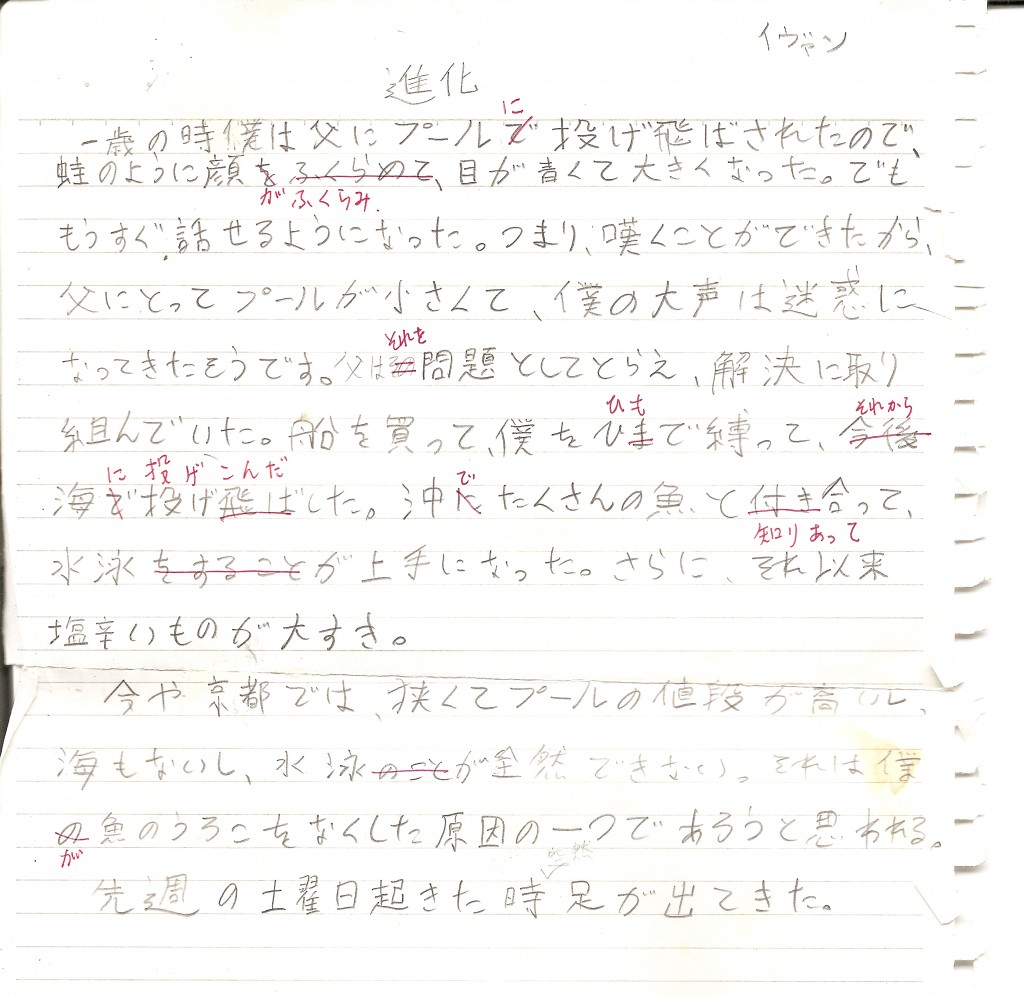 イヴァン
進化
に
一歳の時僕は父にプールで投げ飛ばされたので、
蛙のように顔をふくらめて、目が青くて大きくなった。でも
がふくらみ.
もうすぐ、話せるようになった。つまり、嘆くことができたから、
父にとってプールが小さくて、僕の大声は迷惑に
それを
なってきたそうです。父は問題としてとらえ、解決に取り
ひも それから
組んでいた。船を買って、僕をひまで縛って、今後
に投げこんだ で
海で投げ飛ばした。沖へたくさんの魚と付き合って、
知りあって
水泳をすることが上手になった。さらに、それ以来
塩辛いものが大すき。
今や京都では、狭くてプールの値段が高いし、
海もないし、水泳のことが全然できない。それは僕
の魚のうろこをなくした原因の一つであろうと思われる。
が
突然
先週の土曜日起きた時足が出てきた。